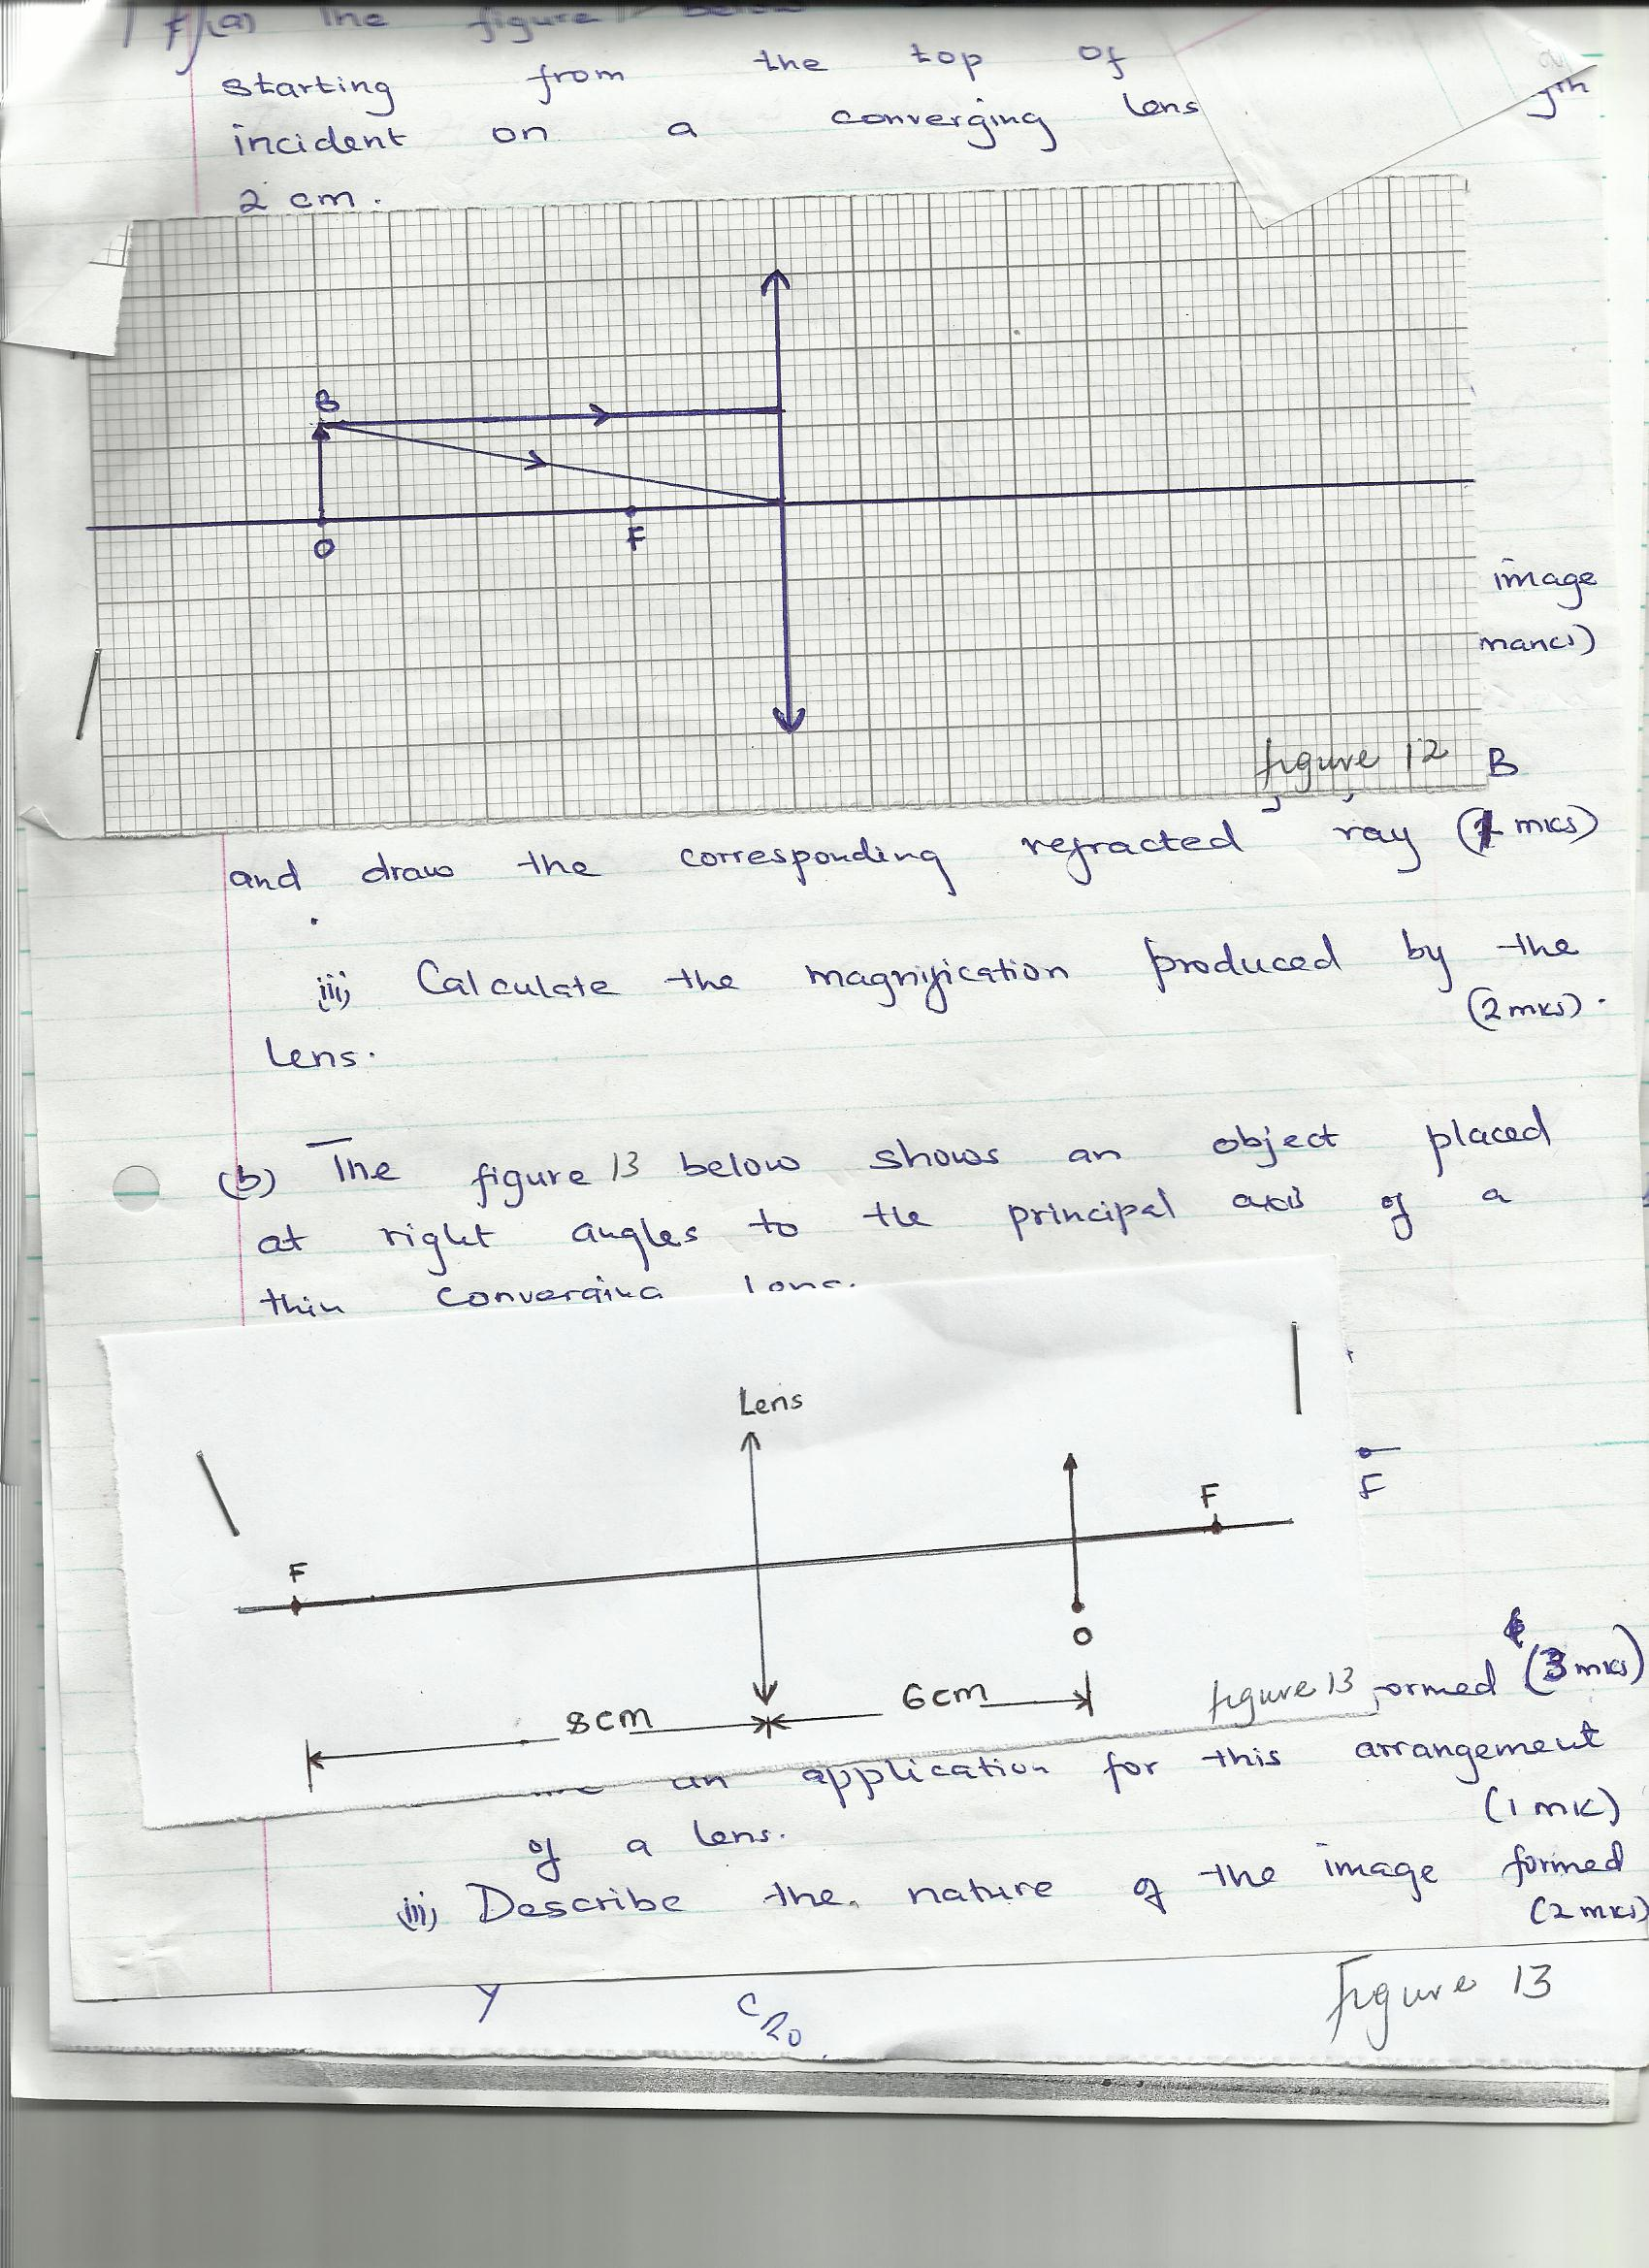 (a) The figure below
starting from the top of
incident on a converging lens
2 cm.
B
O
F
image
figure 12
B
and draw the corresponding refracted ray (1 mks)
iii) Calculate the magnification produced by the
(2mks).
lens.
(b) The figure 13 below shows an object placed
at right angles to the principal axis of a
thin converging lens.
Lens
F
F
F
O
8cm
6cm
figure 13
ormed (3 mks)
an application for this arrangement
(1 mk)
of a lens.
iii) Describe the nature of the image formed
(2 mks)
Y
CRO
Figure 13